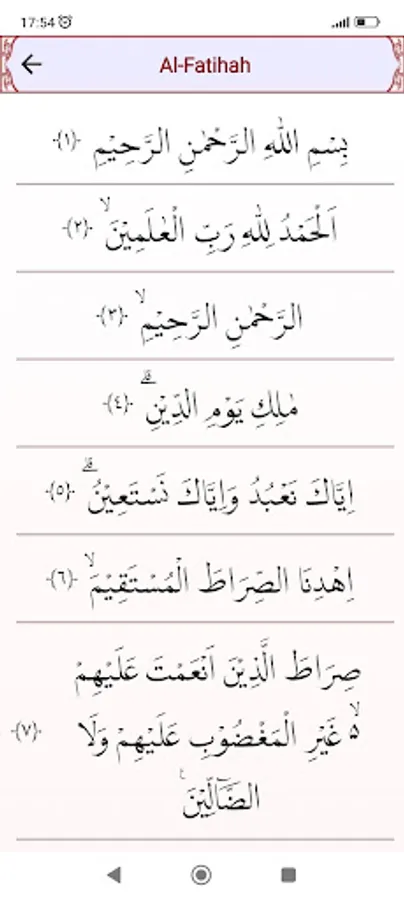 17:54
Al-Fatihah
بِسْمِ اللّٰهِ الرَّحْمٰنِ الرَّحِيْمِ -{١}-
اَلْحَمْدُ لِلّٰهِ رَبِّ الْعٰلَمِيْنَۙ -{٢}-
الرَّحْمٰنِ الرَّحِيْمِۙ -{٣}-
مٰلِكِ يَوْمِ الدِّيْنِۗ -{٤}-
اِيَّاكَ نَعْبُدُ وَاِيَّاكَ نَسْتَعِيْنُۗ -{٥}-
اِهْدِنَا الصِّرَاطَ الْمُسْتَقِيْمَۙ -{٦}-
صِرَاطَ الَّذِيْنَ اَنْعَمْتَ عَلَيْهِمْ
ەۙ غَيْرِ الْمَغْضُوْبِ عَلَيْهِمْ وَلَا -{٧}-
الضَّاۤلِّيْنَ